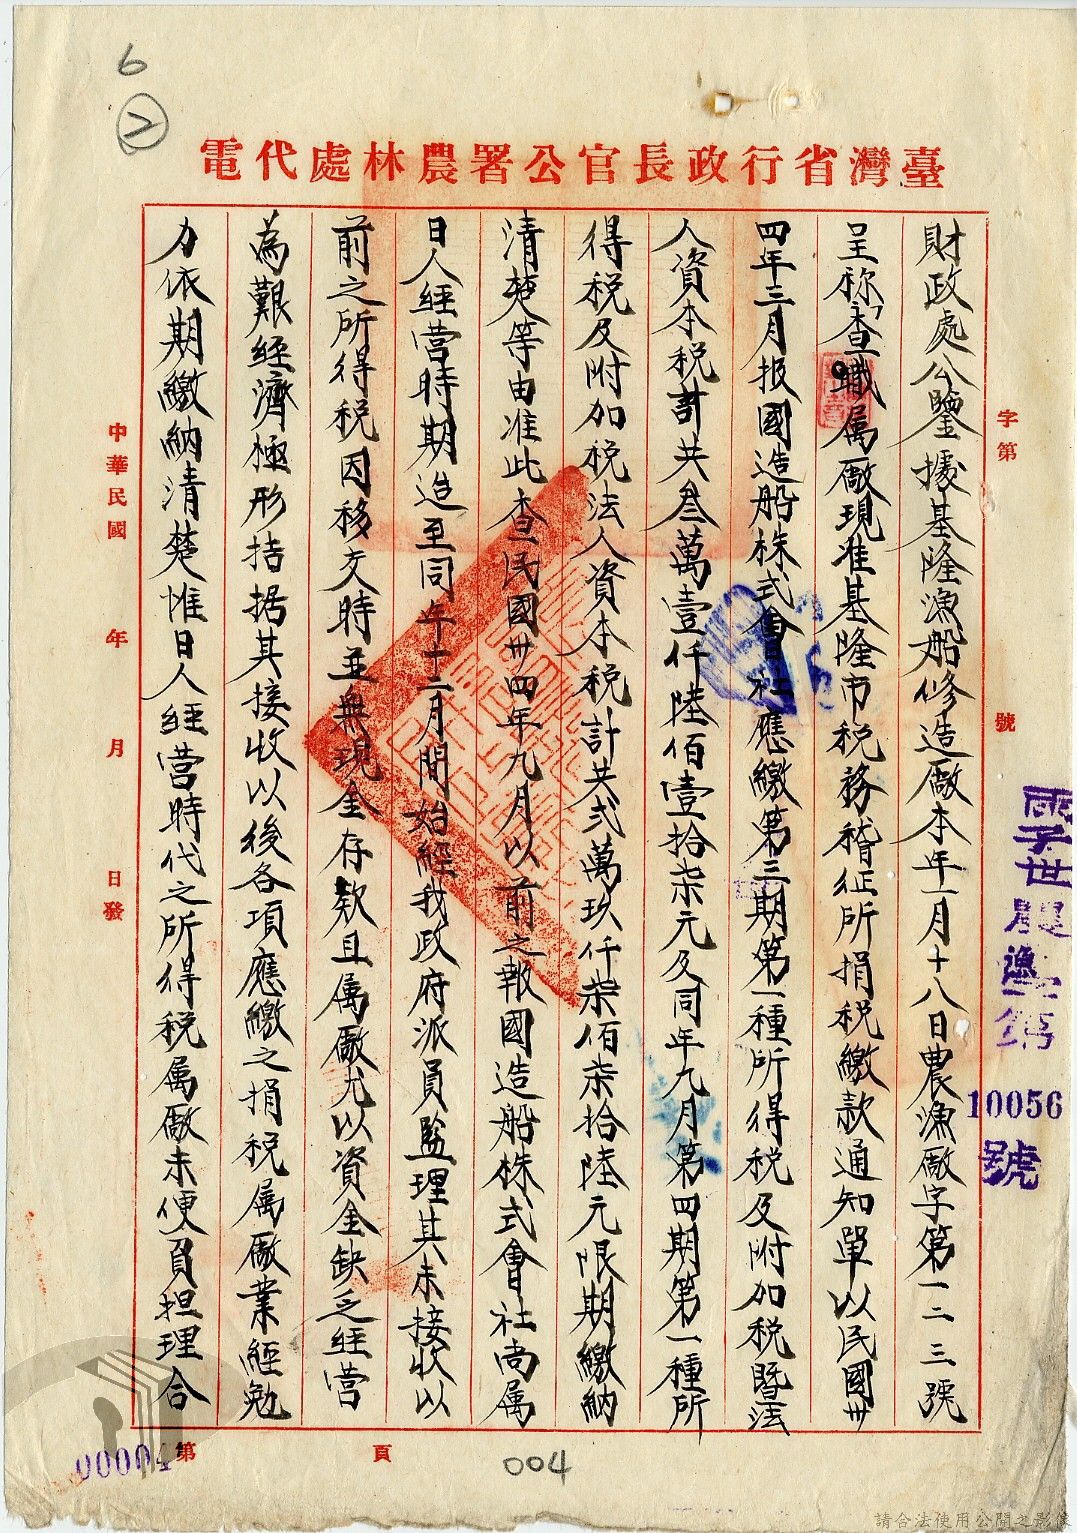 6
②
臺灣省行政長官公署農林處代電
字第
號
署世農漁字第
10056
號
財政處公鑒據基隆漁船修造廠本年一月十八日農漁廠字第一二三號
呈称「查職属廠現准基隆市税務稽征所捐税繳款通知單以民國卅
四年三月报國造船株式會社應繳第三期第一種所得税及附加税暨法
人資本税計共叁萬壹仟陸佰壹拾柒元及同年九月第四期第一種所
得税及附加税法人資本税計共弍萬玖仟柒佰柒拾陸元限期繳納
清楚等由准此查民國卅四年九月以前之報國造船株式會社尚属
日人經营時期迨至同年十二月間始經我政府派員監理其未接收以
前之所得税因移交時並無現金存款且属廠尤以資金缺乏經营
為艱經濟極形拮据其接收以後各項應繳之捐税属廠業經勉
力依期繳納清楚惟日人經营時代之所得税属廠未便負担理合
中華民國
年
月
日發
第
頁
00004
004
請合法使用公開之影像